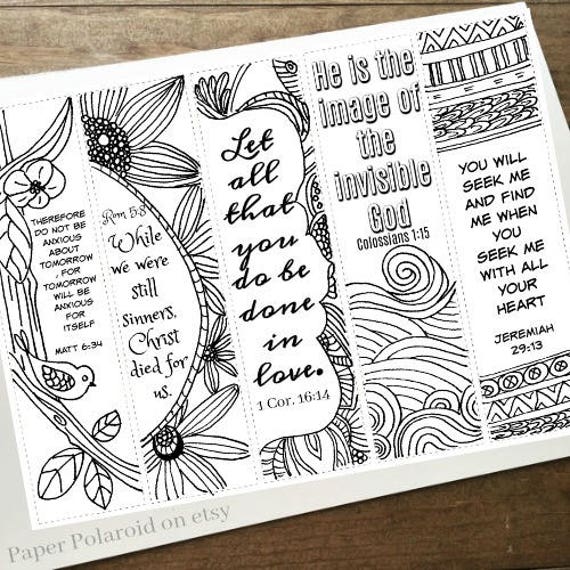 THEREFORE
DO NOT BE
ANXIOUS
ABOUT
TOMORROW
, FOR
TOMORROW
WILL BE
ANXIOUS
FOR
ITSELF
MATT 6:34
Rom 5:8
While
we were
still
sinners,
Christ
died for
us.
Let
all
that
you
do be
done
in
love.
1 Cor. 16:14
He is the
image of
the
invisible
God
Colossians 1:15
YOU WILL
SEEK ME
AND FIND
ME WHEN
YOU
SEEK ME
WITH ALL
YOUR
HEART
JEREMIAH
29:13
Paper Polaroid on etsy